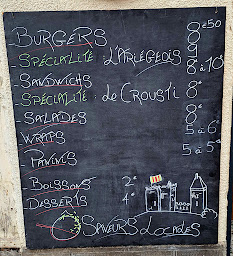 BURGERS 8€50
SPÉCIALITÉ L'ARIÉGEOIS 9
SANDWICHS 8 à 10€
SPÉCIALITÉ : de CROUSTI 8€
SALADES 8€
WRAPS 5 à 6€
PANINIS 5 à 5€
BOISSONS 2€
DESSERTS 4€
SAVEURS LOCALES